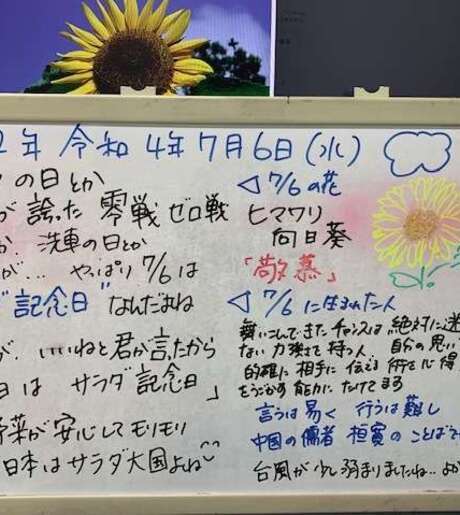 2年 令和4年7月6日(水)
の日とか
が誇った 零戦 ゼロ戦
か 洗車の日とか
が... やっぱり 7/6は
"記念日" なんだよね
が、いいねと君が言ったから
日は サラダ記念日」
野菜が安心してモリモリ
日本はサラダ大国よね
◁ 7/6の花
ヒマワリ
向日葵
「敬慕」
◁ 7/6に生まれた人
舞いこんできたチャンスは絶対に逃
ない力強さを持つ人 自分の思い
的確に相手に伝える術を心得
をうごかす能力にたけてます
言うは易く 行うは難し
中国の儒者 桓寛のことば
台風が少し弱まりましたね... よか